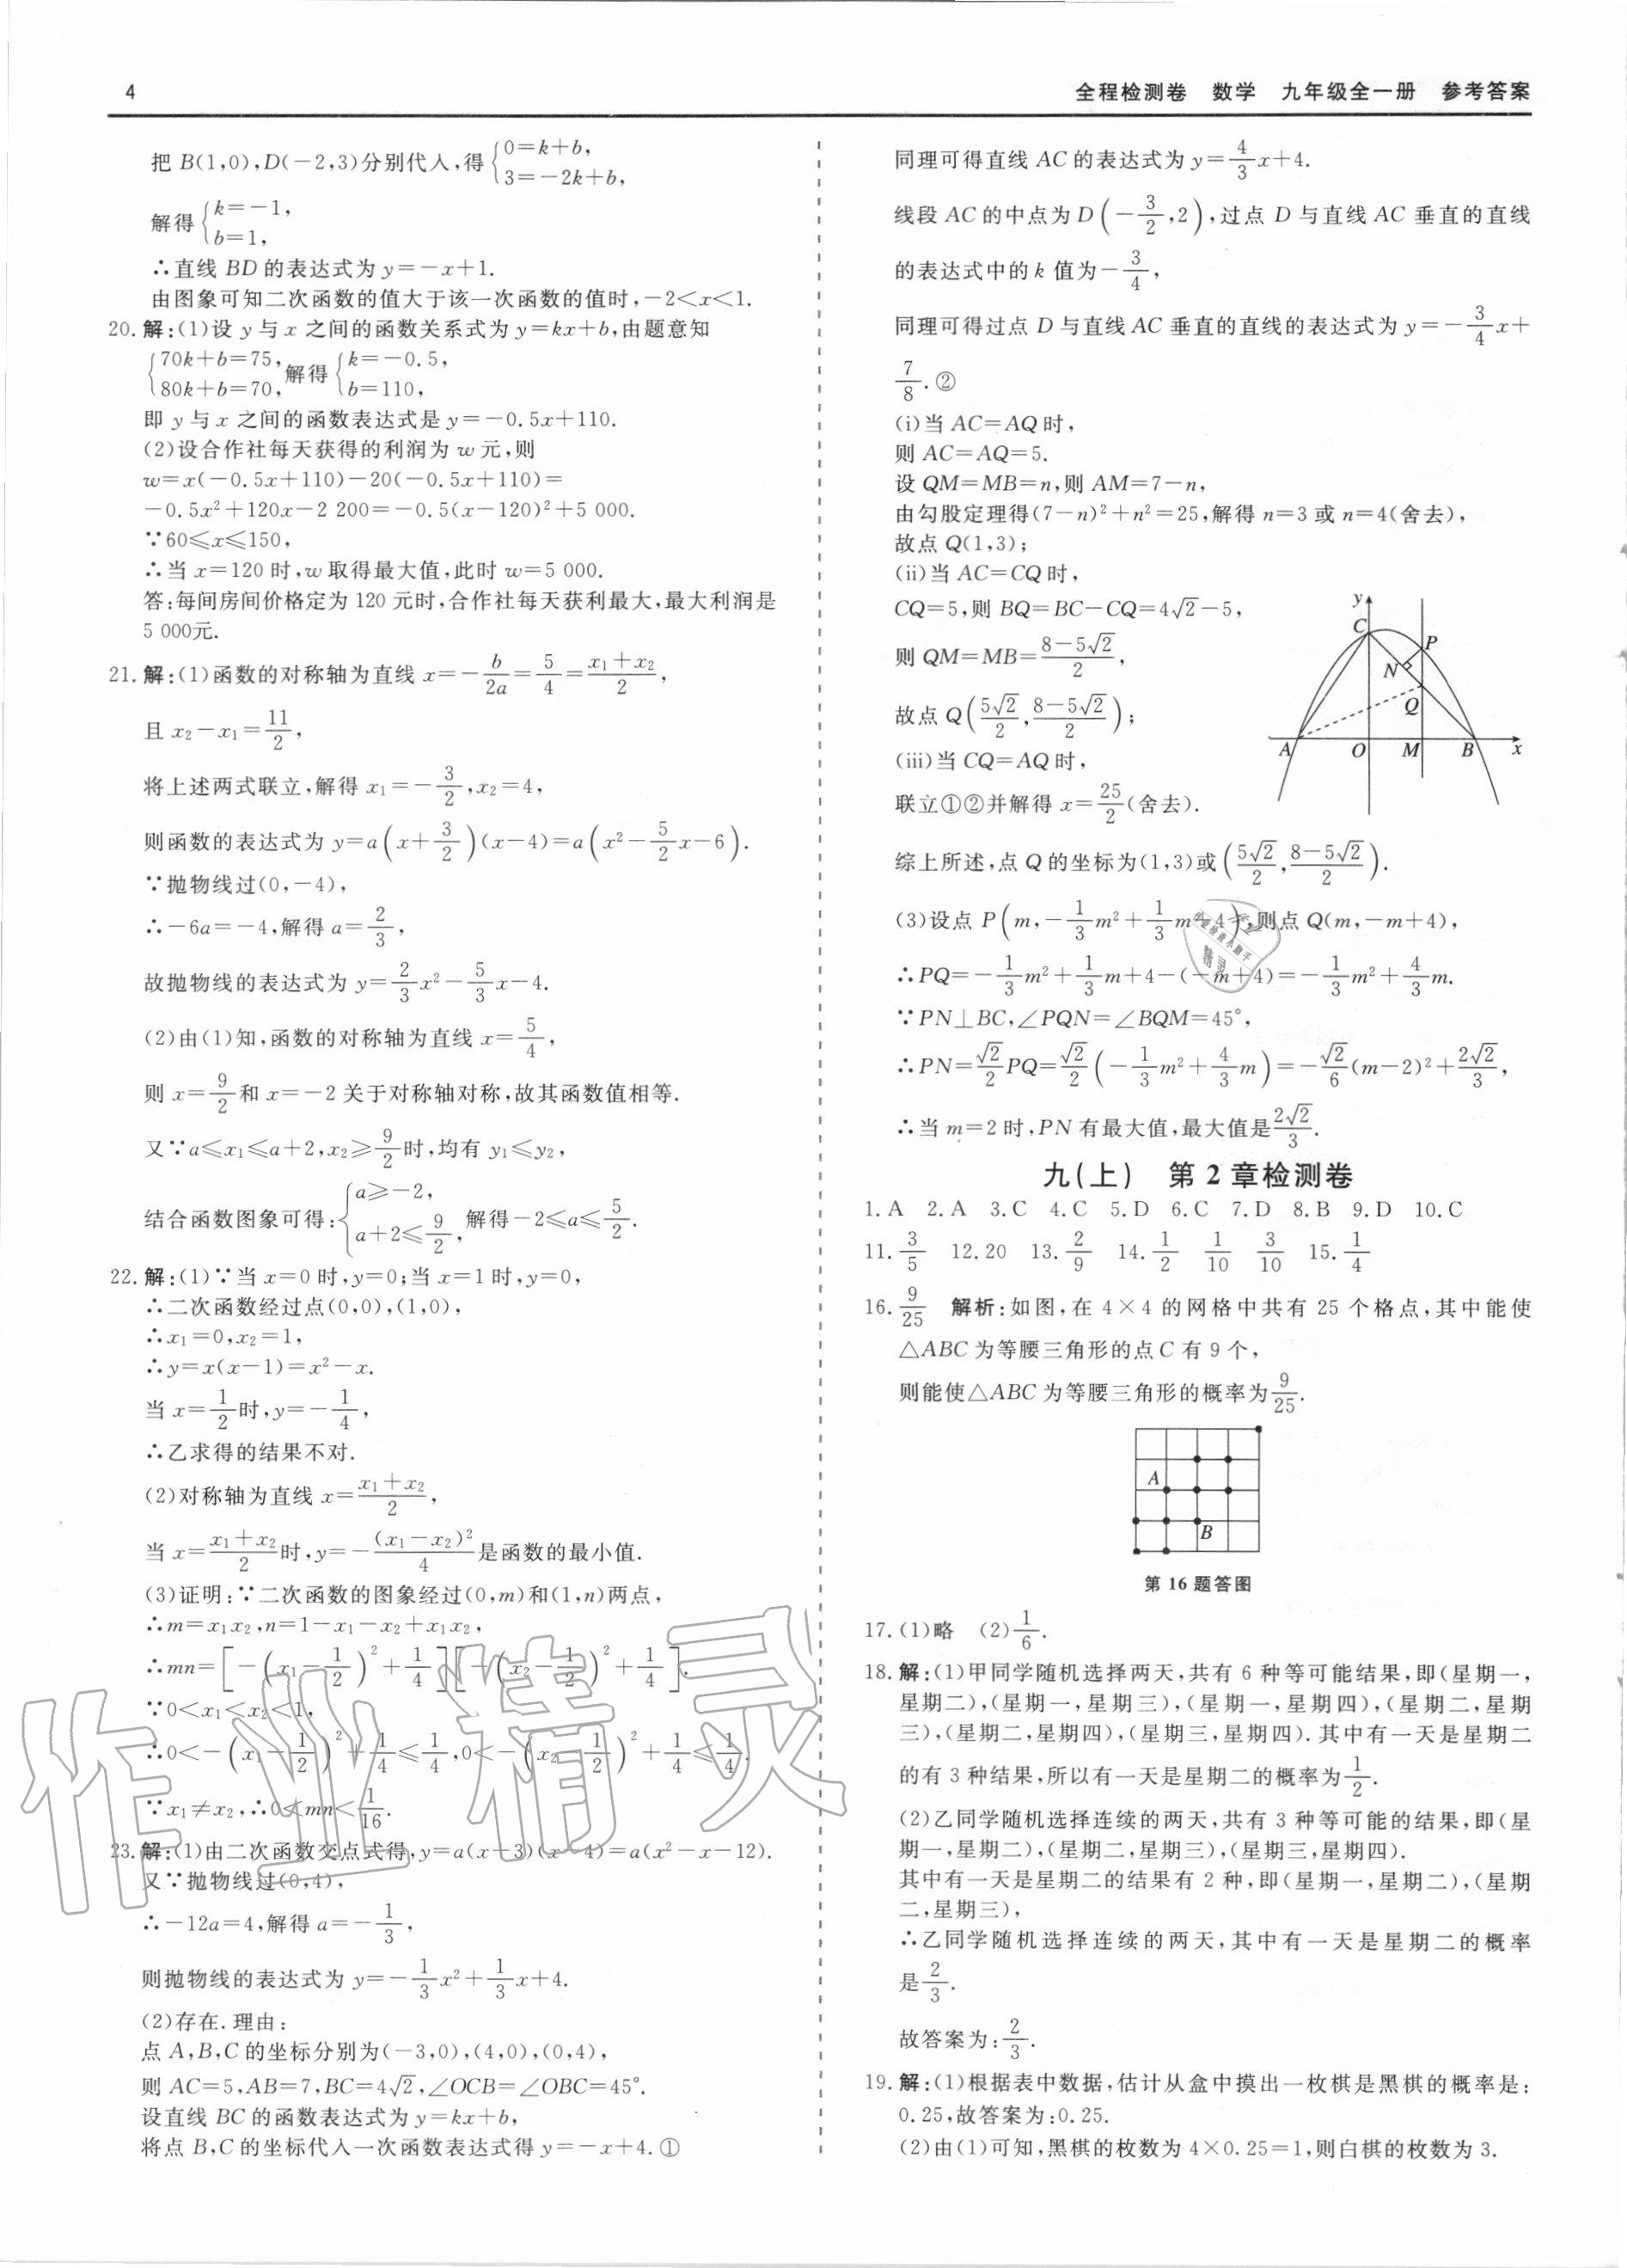 4
全程检测卷 数学 九年级全一册 参考答案
把 B(1,0),D(-2,3)分别代入,得{0=k+b, 3=-2k+b,
解得{k=-1, b=1,
∴直线 BD 的表达式为 y=-x+1.
由图象可知二次函数的值大于该一次函数的值时,-2<x<1.
20. 解:(1)设 y 与 x 之间的函数关系式为 y=kx+b,由题意知
{70k+b=75, 80k+b=70, 解得{k=-0.5, b=110,
即 y 与 x 之间的函数表达式是 y=-0.5x+110.
(2)设合作社每天获得的利润为 w 元,则
w=x(-0.5x+110)-20(-0.5x+110)=
-0.5x²+120x-2 200=-0.5(x-120)²+5 000.
∵60≤x≤150,
∴当 x=120 时,w 取得最大值,此时 w=5 000.
答:每间房间价格定为 120 元时,合作社每天获利最大,最大利润是
5 000元.
21. 解:(1)函数的对称轴为直线 x=-b/2a=5/4=(x₁+x₂)/2,
且 x₂-x₁=11/2,
将上述两式联立,解得 x₁=-3/2,x₂=4,
则函数的表达式为 y=a(x+3/2)(x-4)=a(x²-5/2x-6).
∵抛物线过(0,-4),
∴-6a=-4,解得 a=2/3,
故抛物线的表达式为 y=2/3x²-5/3x-4.
(2)由(1)知,函数的对称轴为直线 x=5/4,
则 x=9/2和 x=-2 关于对称轴对称,故其函数值相等.
又∵a≤x₁≤a+2,x₂≥9/2时,均有 y₁≤y₂,
结合函数图象可得:{a≥-2, a+2≤9/2, 解得-2≤a≤5/2.
22. 解:(1)∵当 x=0 时,y=0;当 x=1 时,y=0,
∴二次函数经过点(0,0),(1,0),
∴x₁=0,x₂=1,
∴y=x(x-1)=x²-x.
当 x=1/2时,y=-1/4,
∴乙求得的结果不对.
(2)对称轴为直线 x=(x₁+x₂)/2,
当 x=(x₁+x₂)/2时,y=-(x₁-x₂)²/4是函数的最小值.
(3)证明:∵二次函数的图象经过(0,m)和(1,n)两点,
∴m=x₁x₂,n=1-x₁-x₂+x₁x₂,
∴mn=[-(x₁-1/2)²+1/4][-(x₂-1/2)²+1/4].
∵0<x₁<x₂<1,
∴0<-(x₁-1/2)²+1/4≤1/4,0<-(x₂-1/2)²+1/4≤1/4.
∵x₁≠x₂,∴0<mn<1/16.
23. 解:(1)由二次函数交点式得,y=a(x+3)(x-4)=a(x²-x-12).
又∵抛物线过(0,4),
∴-12a=4,解得 a=-1/3,
则抛物线的表达式为 y=-1/3x²+1/3x+4.
(2)存在.理由:
点 A,B,C 的坐标分别为(-3,0),(4,0),(0,4),
则 AC=5,AB=7,BC=4√2,∠OCB=∠OBC=45°.
设直线 BC 的函数表达式为 y=kx+b,
将点 B,C 的坐标代入一次函数表达式得 y=-x+4.①
同理可得直线 AC 的表达式为 y=4/3x+4.
线段 AC 的中点为 D(-3/2,2),过点 D 与直线 AC 垂直的直线
的表达式中的 k 值为-3/4,
同理可得过点 D 与直线 AC 垂直的直线的表达式为 y=-3/4x+
7/8.②
(i)当 AC=AQ 时,
则 AC=AQ=5.
设 QM=MB=n,则 AM=7-n,
由勾股定理得(7-n)²+n²=25,解得 n=3 或 n=4(舍去),
故点 Q(1,3);
(ii)当 AC=CQ 时,
CQ=5,则 BQ=BC-CQ=4√2-5,
则 QM=MB=(8-5√2)/2,
故点 Q(5√2/2,(8-5√2)/2);
(iii)当 CQ=AQ 时,
联立①②并解得 x=25/2(舍去).
y
C
P
N
Q
A
O
M
B
x
综上所述,点 Q 的坐标为(1,3)或(5√2/2,(8-5√2)/2).
(3)设点 P(m,-1/3m²+1/3m+4),则点 Q(m,-m+4),
∴PQ=-1/3m²+1/3m+4-(-m+4)=-1/3m²+4/3m.
∵PN⊥BC,∠PQN=∠BQM=45°,
∴PN=√2/2PQ=√2/2(-1/3m²+4/3m)=-√2/6(m-2)²+2√2/3,
∴当 m=2 时,PN 有最大值,最大值是2√2/3.
九(上) 第 2 章检测卷
1. A 2. A 3. C 4. C 5. D 6. C 7. D 8. B 9. D 10. C
11. 3/5 12. 20 13. 2/9 14. 1/2 1/10 3/10 15. 1/4
16. 9/25 解析:如图,在 4×4 的网格中共有 25 个格点,其中能使
△ABC 为等腰三角形的点 C 有 9 个,
则能使△ABC 为等腰三角形的概率为9/25.
A
B
第 16 题答图
17. (1)略 (2)1/6.
18. 解:(1)甲同学随机选择两天,共有 6 种等可能结果,即(星期一,
星期二),(星期一,星期三),(星期一,星期四),(星期二,星期
三),(星期二,星期四),(星期三,星期四).其中有一天是星期二
的有 3 种结果,所以有一天是星期二的概率为1/2.
(2)乙同学随机选择连续的两天,共有 3 种等可能的结果,即(星
期一,星期二),(星期二,星期三),(星期三,星期四).
其中有一天是星期二的结果有 2 种,即(星期一,星期二),(星期
二,星期三),
∴乙同学随机选择连续的两天,其中有一天是星期二的概率
是2/3.
故答案为:2/3.
19. 解:(1)根据表中数据,估计从盒中摸出一枚棋是黑棋的概率是:
0.25,故答案为:0.25.
(2)由(1)可知,黑棋的枚数为 4×0.25=1,则白棋的枚数为 3.
作业精灵